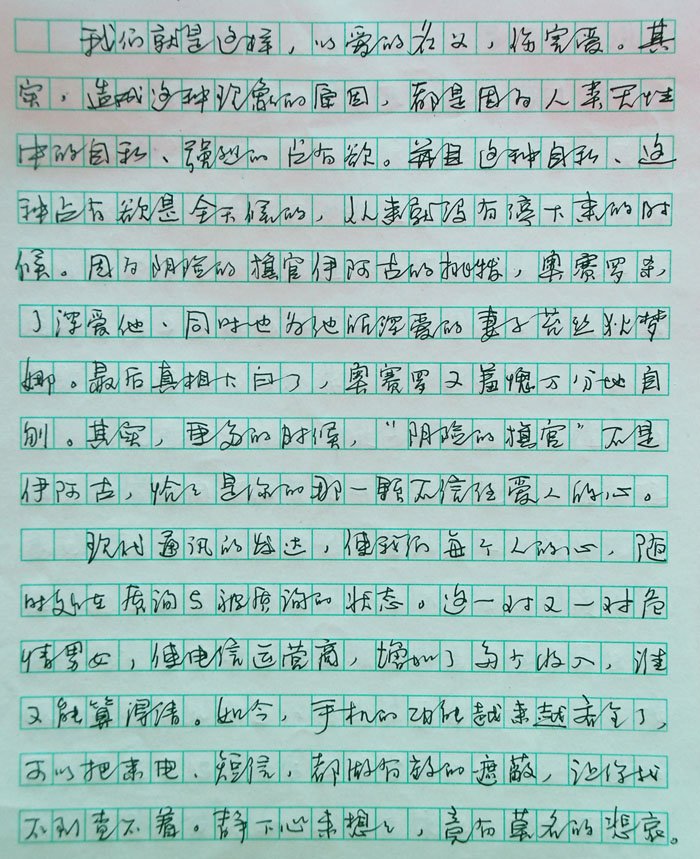 我们就是这样，以爱的名义，伤害爱。其
实，造成这种现象的原因，都是因为人类天性
中的自私、强烈的占有欲。并且这种自私、这
种占有欲是全天候的，从来就没有停下来的时
候。因为阴险的旗官伊阿古的挑拨，奥赛罗杀
了深爱他、同时也为他所深爱的妻子苔丝狄梦
娜。最后真相大白了，奥赛罗又羞愧万分地自
刎。其实，更多的时候，“阴险的旗官”不是
伊阿古，恰恰是你的那一颗不信任爱人的心。
现代通讯的发达，使我们每个人的心，随
时处在质询与被质询的状态。这一对又一对危
情男女，使电信运营商，增加了多少收入，谁
又能算得清。如今，手机的功能越来越齐全了，
可以把来电、短信，都做有效的遮蔽，让你找
不到查不着。静下心来想想，竟有莫名的悲哀。